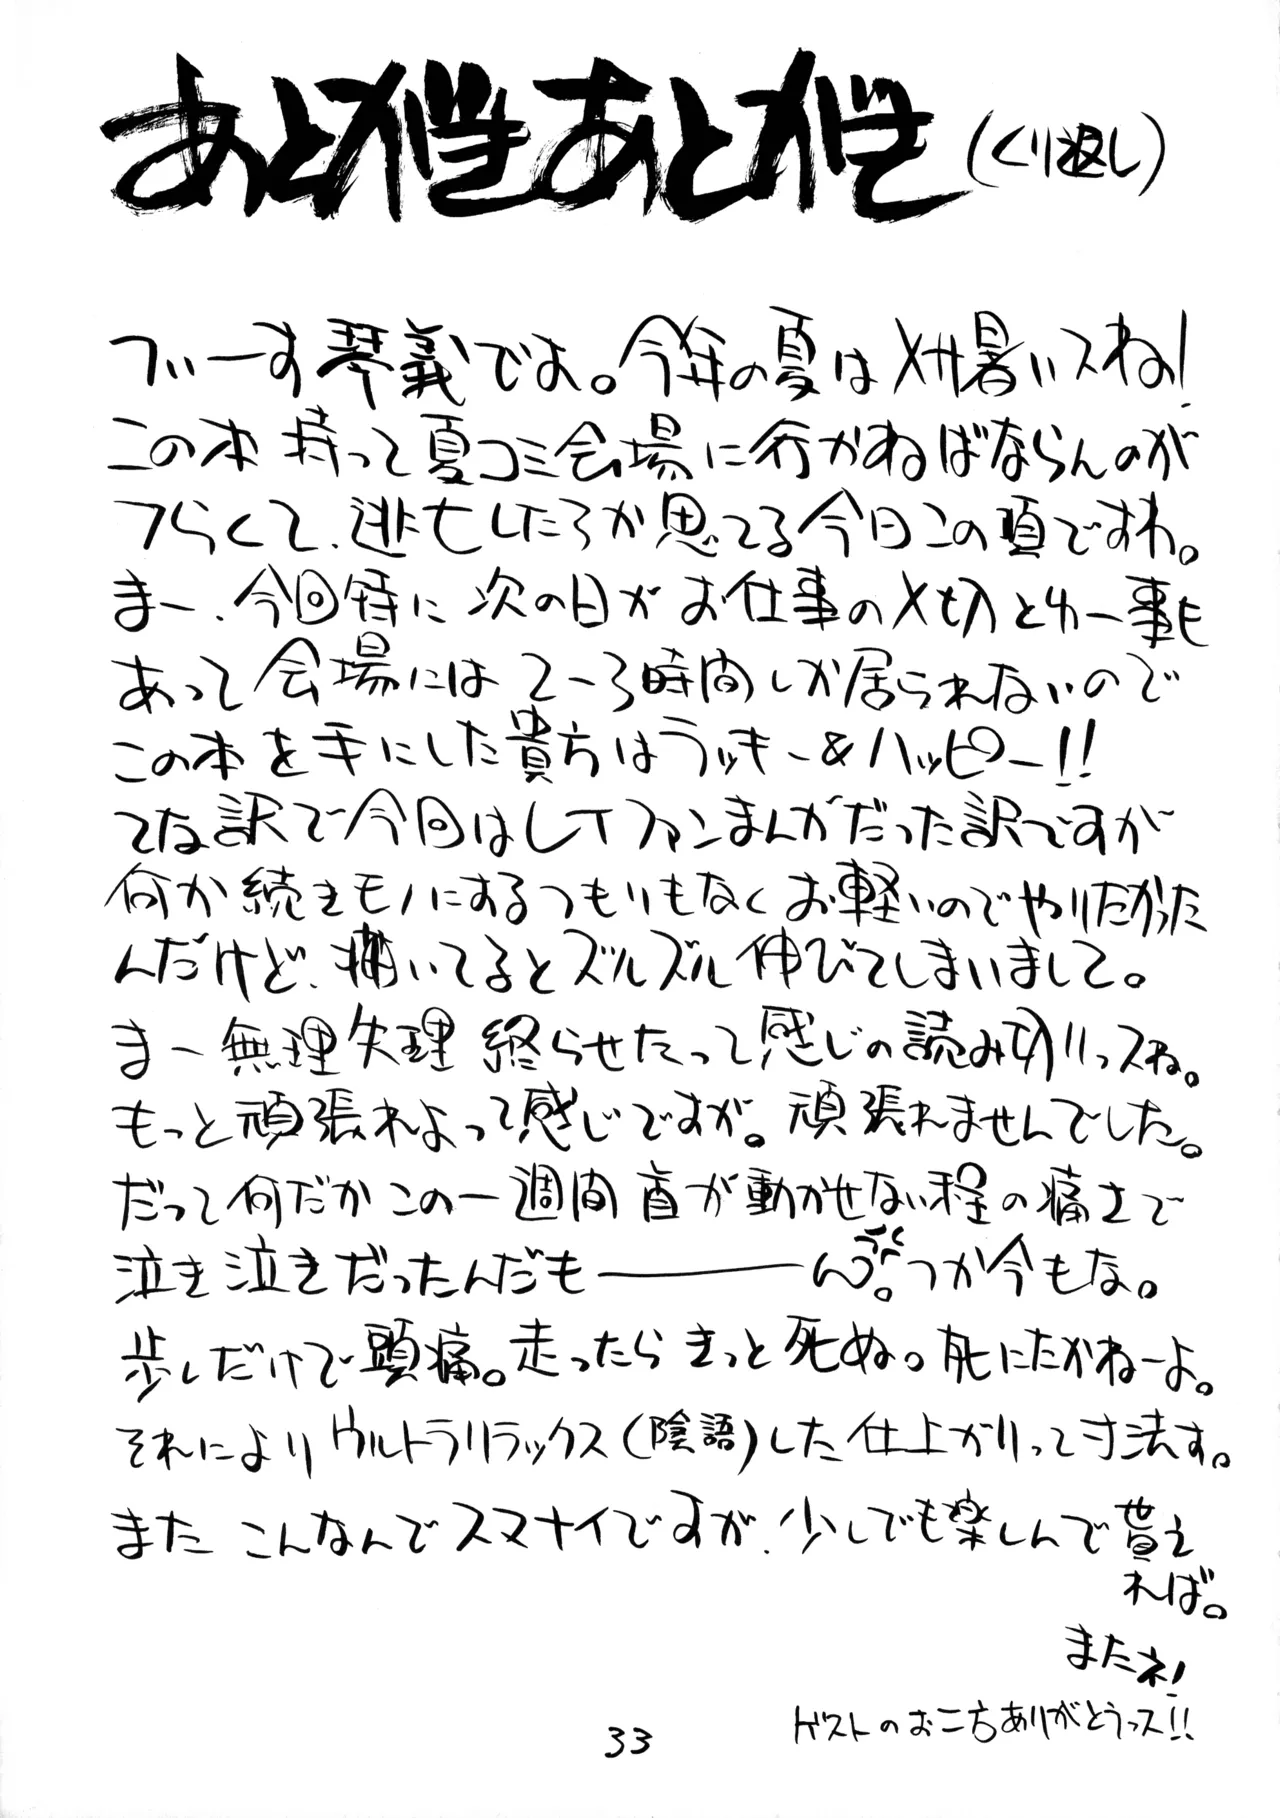 あとがきあとがき(くり返し)
つぃーす琴義でよ。今年の夏はメサ暑いスね!
この本持って夏コミ会場に行かねばならんのが
つらくて、逃亡したろか思てる今日この頃ですわ。
まー、今回特に次の日がお仕事の〆切とゆー事も
あって会場には2~3時間しか居られないので
この本を手にした貴方はラッキー&ハッピー!!
てな訳で今回はレイファンまんがだった訳ですが
何か続きモノにするつもりもなくお軽いのでやりたかった
んだけど、描いてるとズルズル伸びてしまいまして。
まー無理矢理終らせたって感じの読み切りっスね。
もっと頑張れよって感じですが。頑張れませんでした。
だって何だかこの一週間首が動かせない程の痛さで
泣き泣きだったんだも――――ん。つか今もな。
歩くだけで頭痛。走ったらきっと死ぬ。死にたかねーよ。
それによりウルトラリラックス(陰語)した仕上がりって寸法す。
また こんなんでスマナイですが、少しでも楽しんで貰え
れば。
またネ!
ゲストのお二方ありがとうっス!!
33